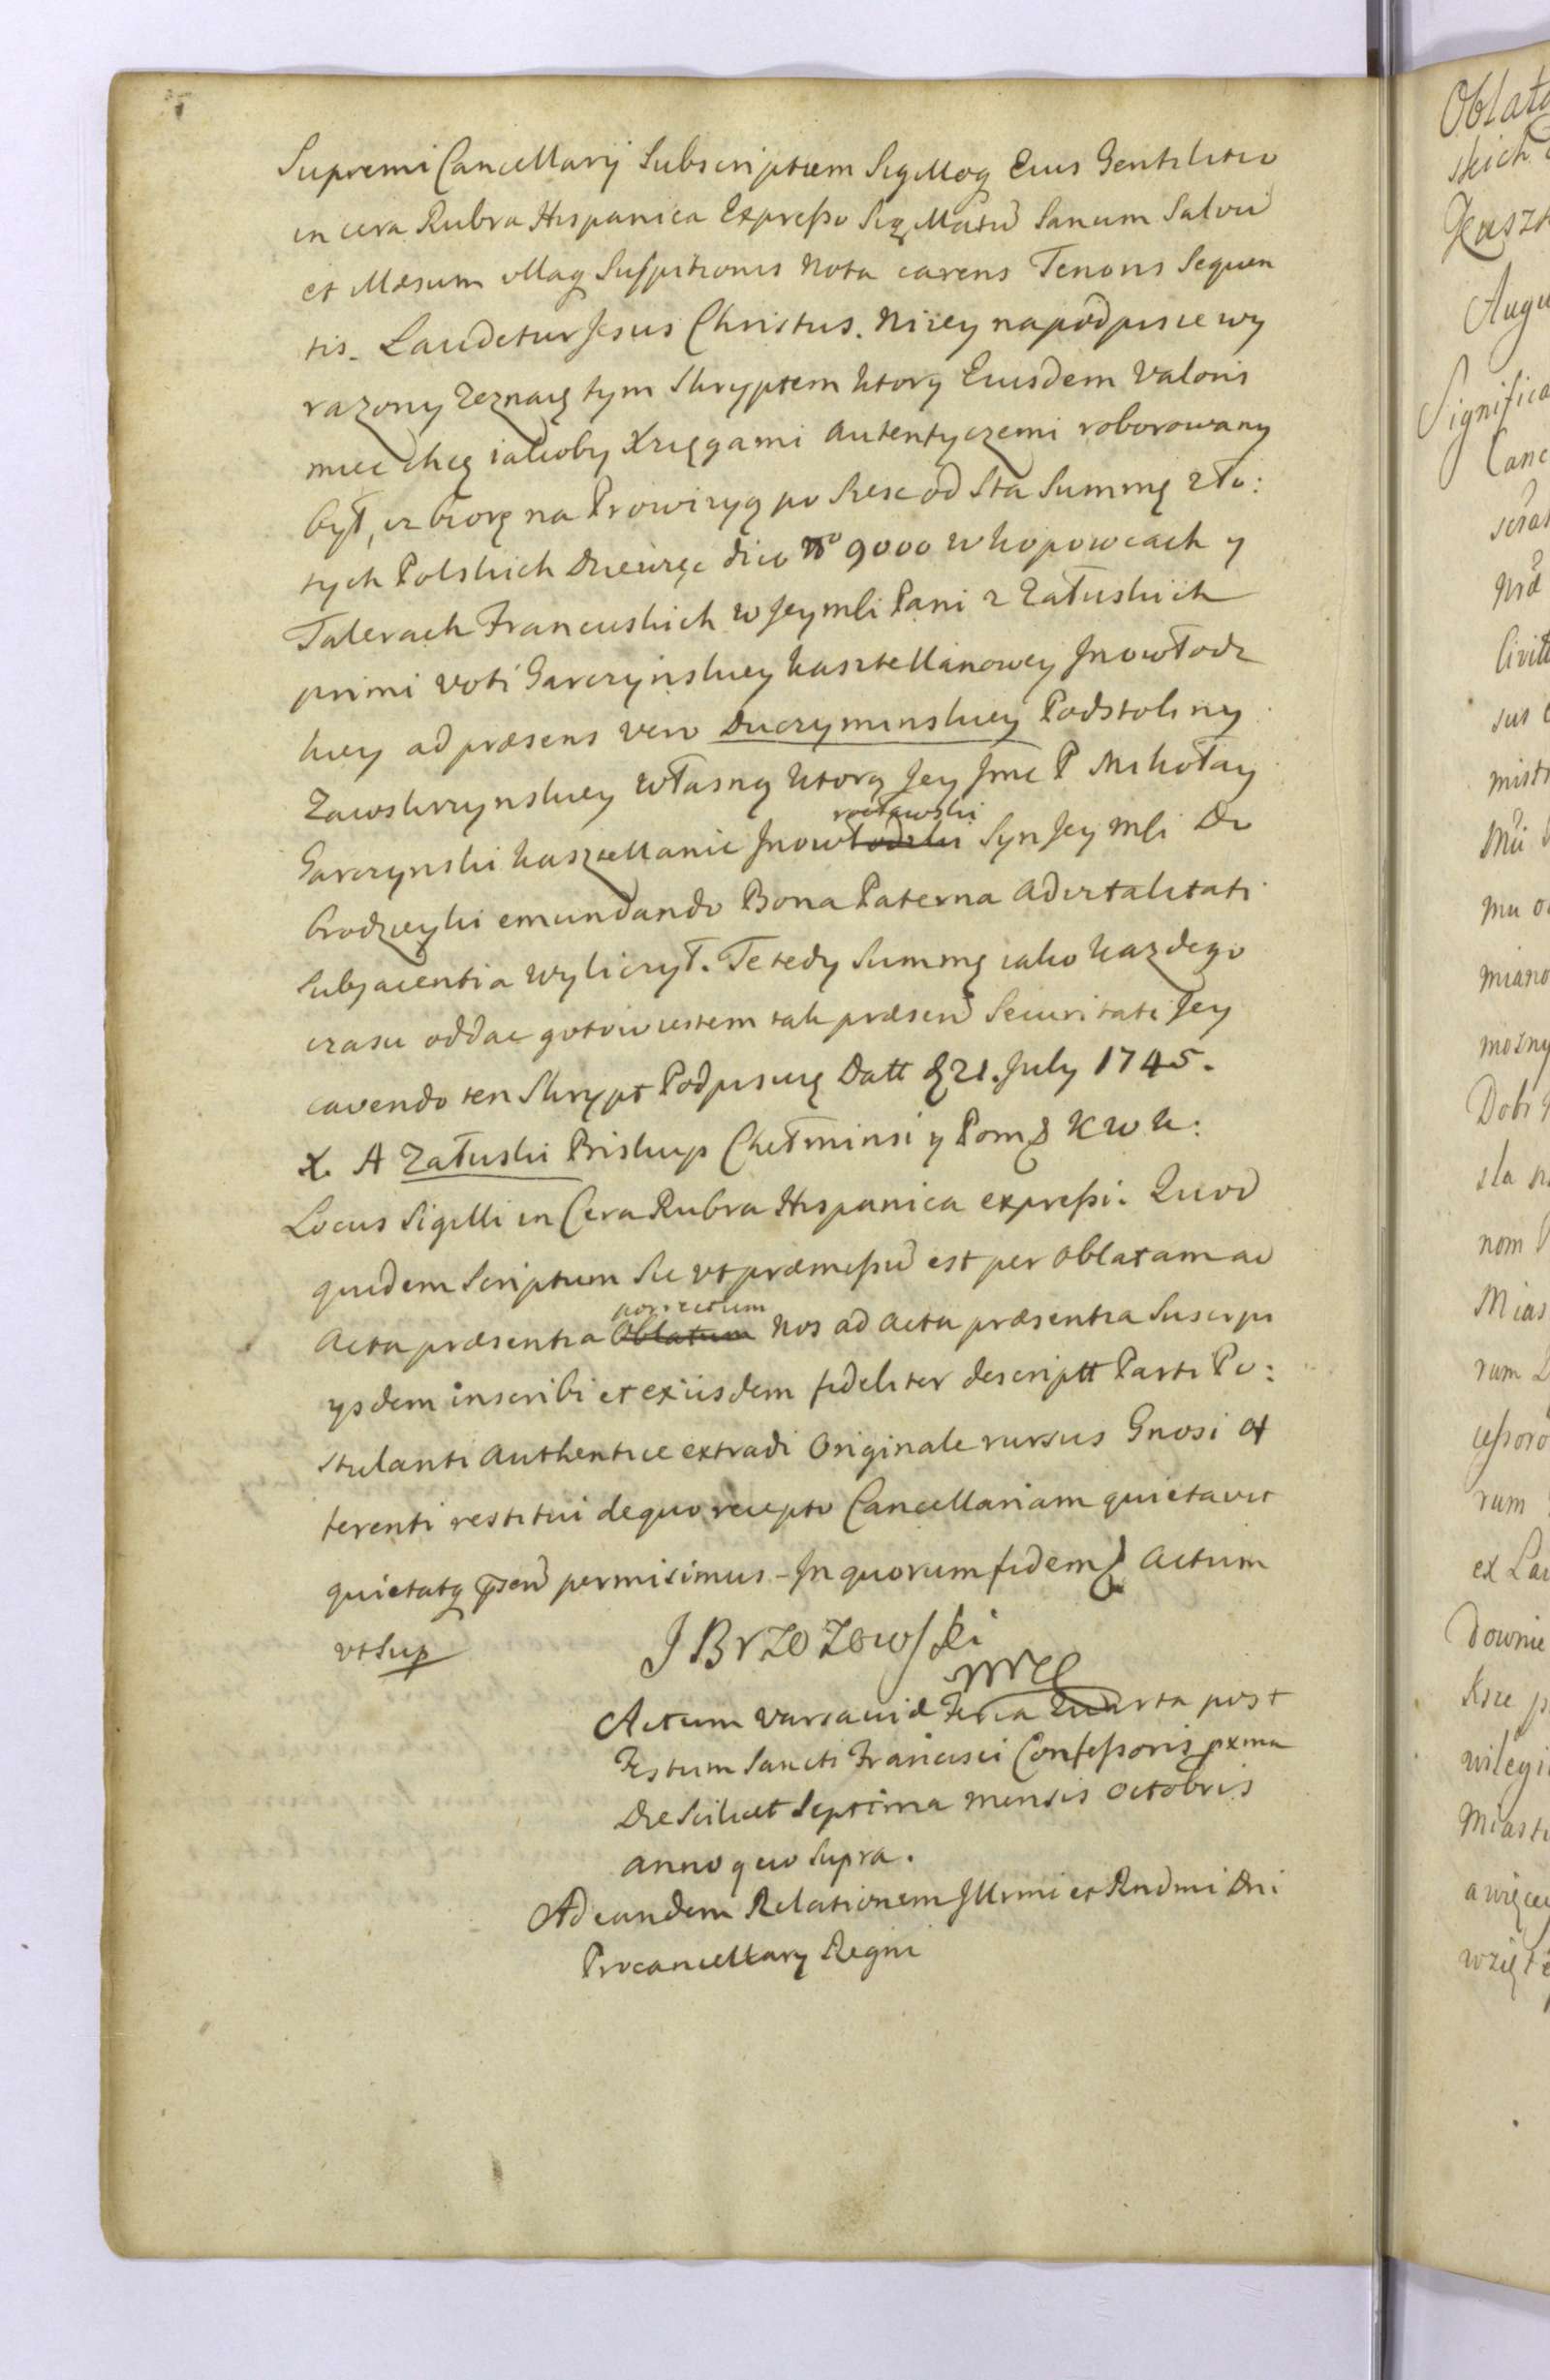 Supremi Cancellarij Subscriptum Sigilloq Eius Gentilitio
in cera Rubra Hispanica Expresso Sigillatu Sanum Salvu
et illæsum ullaq Suspitionis nota carens Tenoris Sequen
tis. Laudetur Jesus Christus. Niżey napodpisie wy
razony zeznaię tym Skryptem ktory Eiusdem Valoris
miec chcę iakoby Xięgami autentyczemi roborowany
był, iz biorę na Prowizyą po Szesc od Sta Summę zło:
tych Polskich Dziewięc dico No 9000 w kopowcach y
Talerach Francuskich w Jeymsci Pani z Załuskich
primi voti Garczynskiey kasztellanowey Jnowłodz
kiey ad præsens vero Duczyminskiey Podstoliny
Zawskrzynskiey własną ktorą Jey Jmc P Mikołay
rocławski
Garczynski kasztellanic Jnowłodzki Syn Jey Msci Do
brodzieyki emundando Bona Paterna advitalitati
Subjacentia wyliczył. Te tedy Summę iako kazdego
czasu oddac gotow iestem tak præsen Securitati Jey
cavendo ten Skrypt Podpisuię Datt d 21. July 1745.
X. A Załuski Biskup Chełminsi y Pom K W K:
Locus Sigilli in Cera Rubra Hispanica expressi. Quod
quidem Scriptum Sic vt præmissu est per oblatam ad
porrectum
Acta præsentia Oblatum nos ad acta præsentia Suscipi
ysdem inscribi et ex iisdem fideliter descriptt Parti Po:
stulanti Authentice extradi Originale rursus Gnosi of
ferenti restitui de quo recepto Cancellariam quietavit
quietatq psen permisimus - In quorum fidem Actum
vt Sup
J Brzozowski
mp
Actum Varsaviæ Feria Quarta post
Festum Sancti Francisci Confessoris pxma
Die Scilicet Septima mensis octobris
anno quo Supra.
Ad eandem Relationem Jllrmi et Rndmi Dni
Procancellary Regni
Oblata
skich
Augu
Significa
Canc
sus
mist
Mu
miano
mozny
Dobr
sla
nom
Mias
rum
rum
ex La
Downie
wilegi
Miast
a więcey